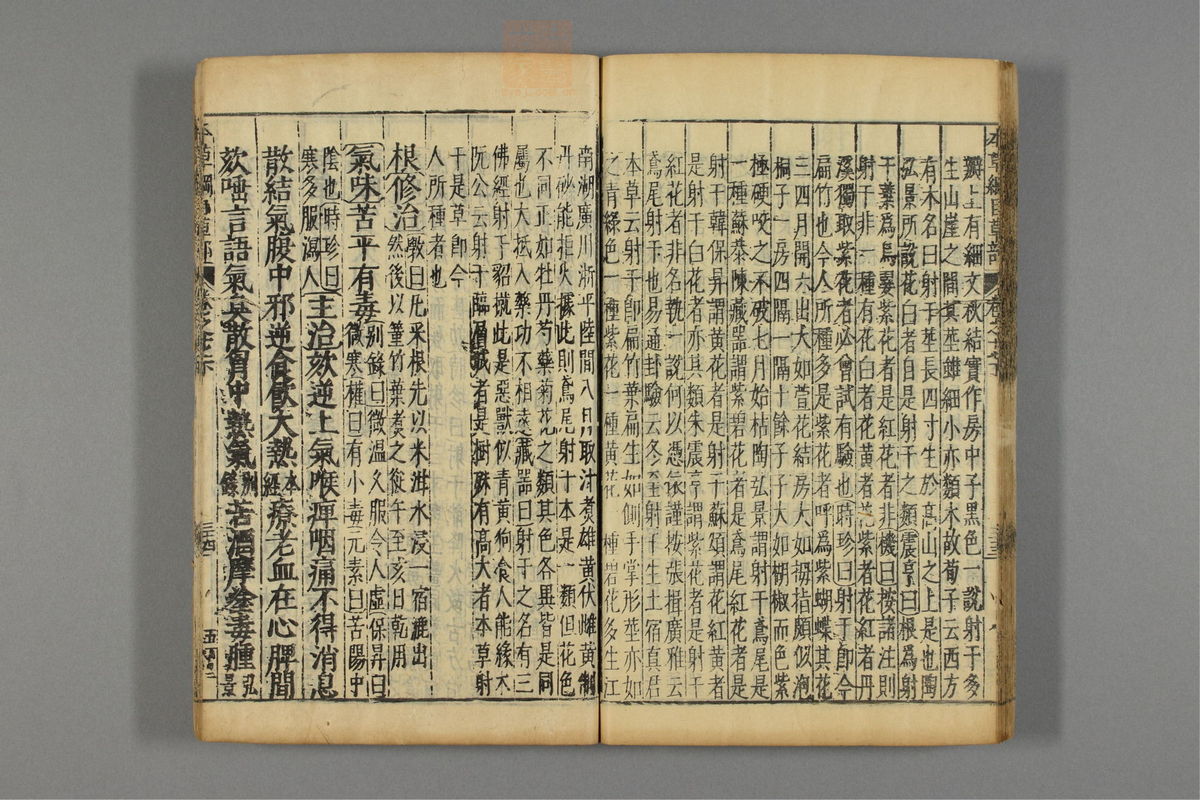 瓣上有細文秋結實作房中子黑色一說射干多
生山崖之間其莖雖細小亦類木故荀子云西方
有木名曰射干莖長四寸生於高山之上是也陶
弘景所說花白者自是射干之類震亨曰根爲射
干葉爲烏翣紫花者是紅花者非機曰按諸注則
射干非一種有花白者花黃者花紫者花紅者丹
溪獨取紫花者必曾試有驗也時珍曰射干即今
扁竹也今人所種多是紫花者呼爲紫蝴蝶其花
三四月開六出大如萱花結房大如拇指頗似泡
桐子一房四隔一隔十餘子子大如胡椒而色紫
極硬咬之不破七月始枯陶弘景謂射干鳶尾是
一種蘇恭陳藏器謂紫碧花者是鳶尾紅花者是
射干韓保昇謂黃花者是射干蘇頌謂花紅黃者
是射干白花者亦其類朱震亨謂紫花者是射干
紅花者非各執一說何以憑依謹按張揖廣雅云
鳶尾射干也易通卦驗云冬至射干生土宿真君
本草云射干即扁竹葉扁生如側手掌形莖亦如
之青綠色一種紫花一種黃花一種碧花多生江
南湖廣川浙平陸間八月取汁煮雄黃伏雌黃制
丹砂能拒火據此則鳶尾射干本是一類但花色
不同正如牡丹芍藥菊花之類其色各異皆是同
屬也大抵入藥功不相遠藏器曰射干之名有三
佛經射干貂𤟤此是惡獸似青黃狗食人能緣木
阮公云射干臨層城者是樹殊有高大者本草射
干是草即今
人所種者也
根修治斆曰凡采根先以米泔水浸一宿漉出
然後以䈽竹葉煮之從午至亥日乾用
氣味苦平有毒別錄曰微溫久服令人虛保昇曰
微寒權曰有小毒元素曰苦陽中
陰也時珍曰
寒多服瀉人主治欬逆上氣喉痺咽痛不得消息
散結氣腹中邪逆食飲大熱本經療老血在心脾間
欬唾言語氣臭散胸中熱氣別錄苦酒摩塗毒腫弘景